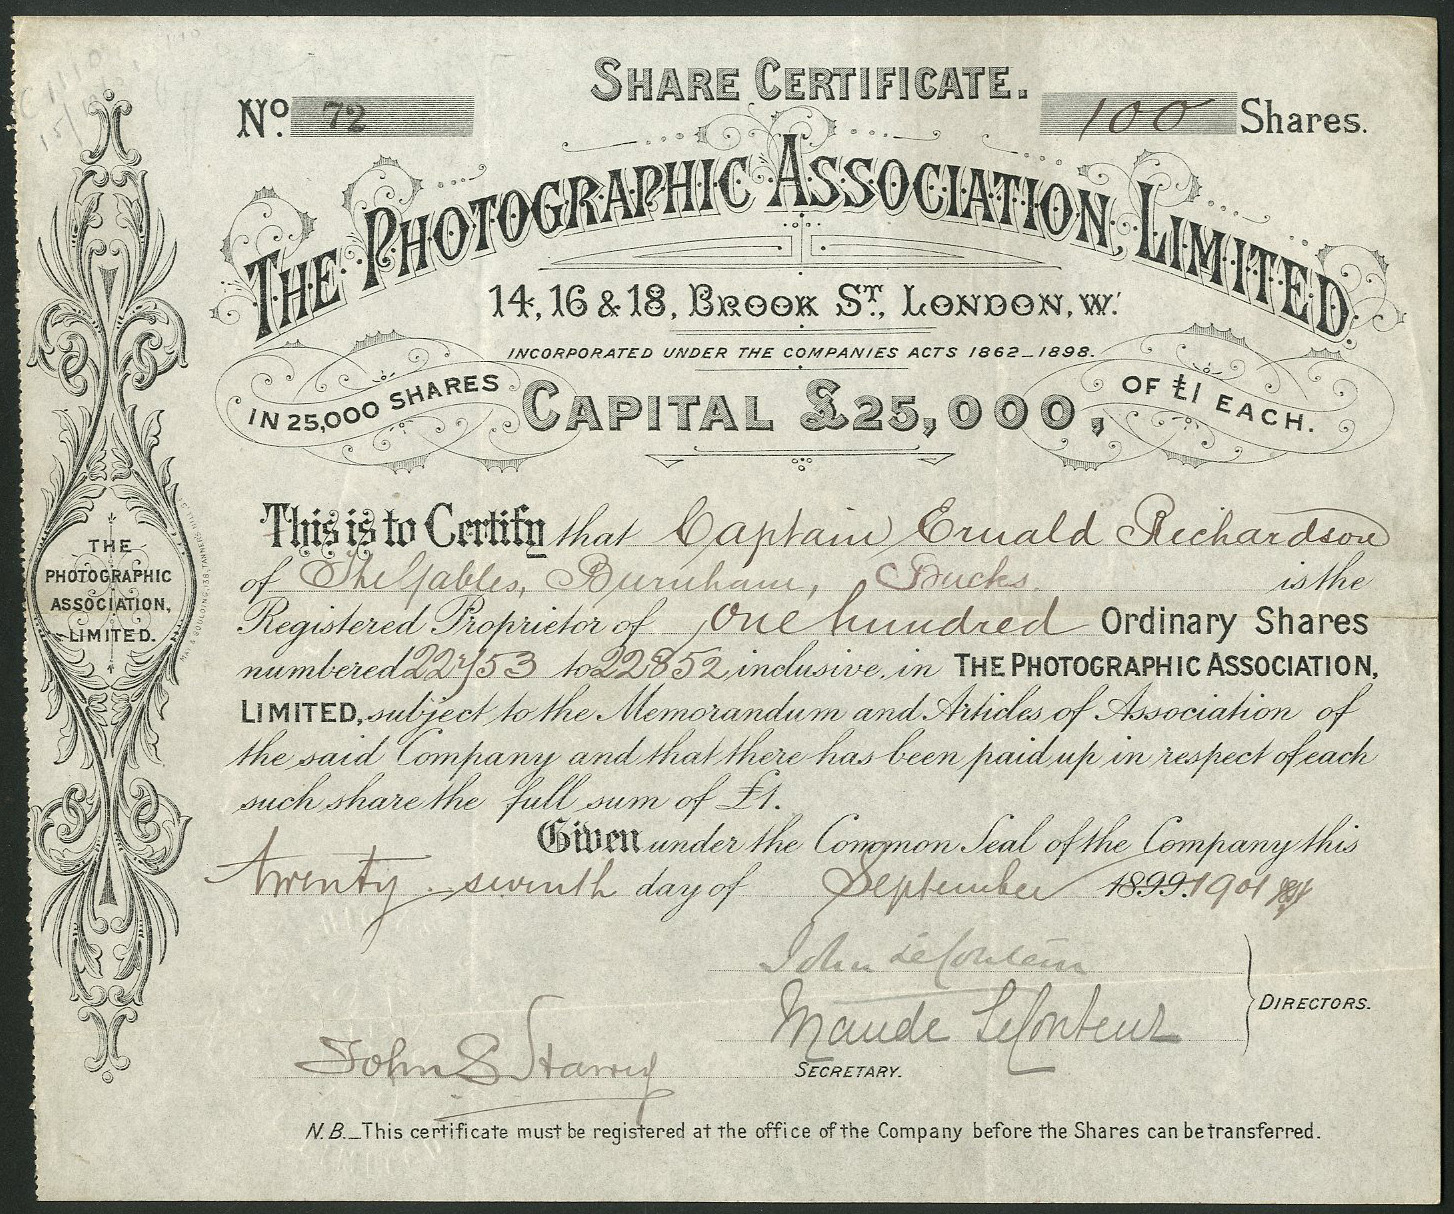 SHARE CERTIFICATE.
No. 72
100 Shares.
THE PHOTOGRAPHIC ASSOCIATION, LIMITED.
14, 16 & 18, BROOK ST, LONDON, W.
INCORPORATED UNDER THE COMPANIES ACTS 1862-1898.
IN 25,000 SHARES CAPITAL £25,000, OF £1 EACH.
This is to Certify that Captain Ernald Richardson
of The Gables, Burnham, Bucks. is the
Registered Proprietor of One hundred Ordinary Shares
numbered 22753 to 22852 inclusive, in THE PHOTOGRAPHIC ASSOCIATION,
LIMITED, subject to the Memorandum and Articles of Association of
the said Company and that there has been paid up in respect of each
such share the full sum of £1.
Given under the Common Seal of the Company this
twenty-seventh day of September 1899. 1901
John
Maude
DIRECTORS.
John S
SECRETARY.
N.B.—This certificate must be registered at the office of the Company before the Shares can be transferred.
THE
PHOTOGRAPHIC
ASSOCIATION,
LIMITED.